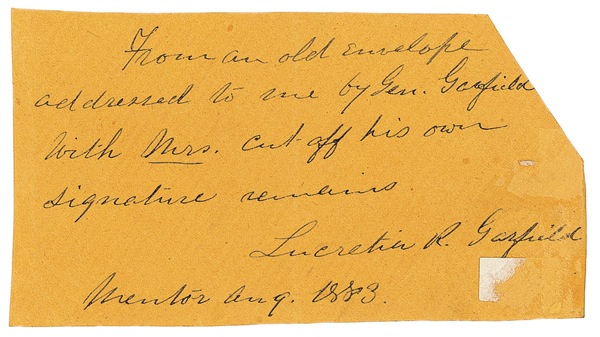 From an old envelope
addressed to me by Gen. Garfield
With Mrs. cut off his own
signature remains.
Lucretia R. Garfield
Mentor Aug. 1883.